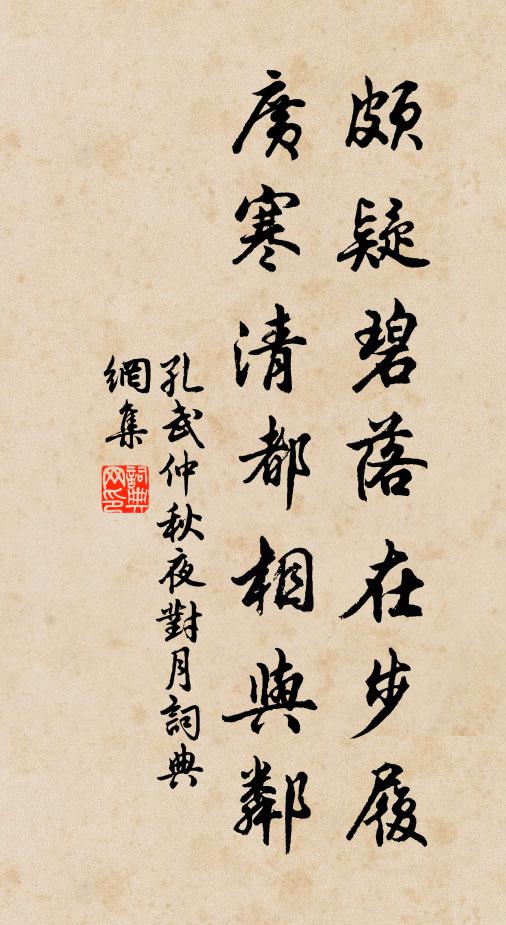 頗疑碧落在步履
廣寒清都相與鄰
孔武仲秋夜對月詞典
網集
詞典
网印